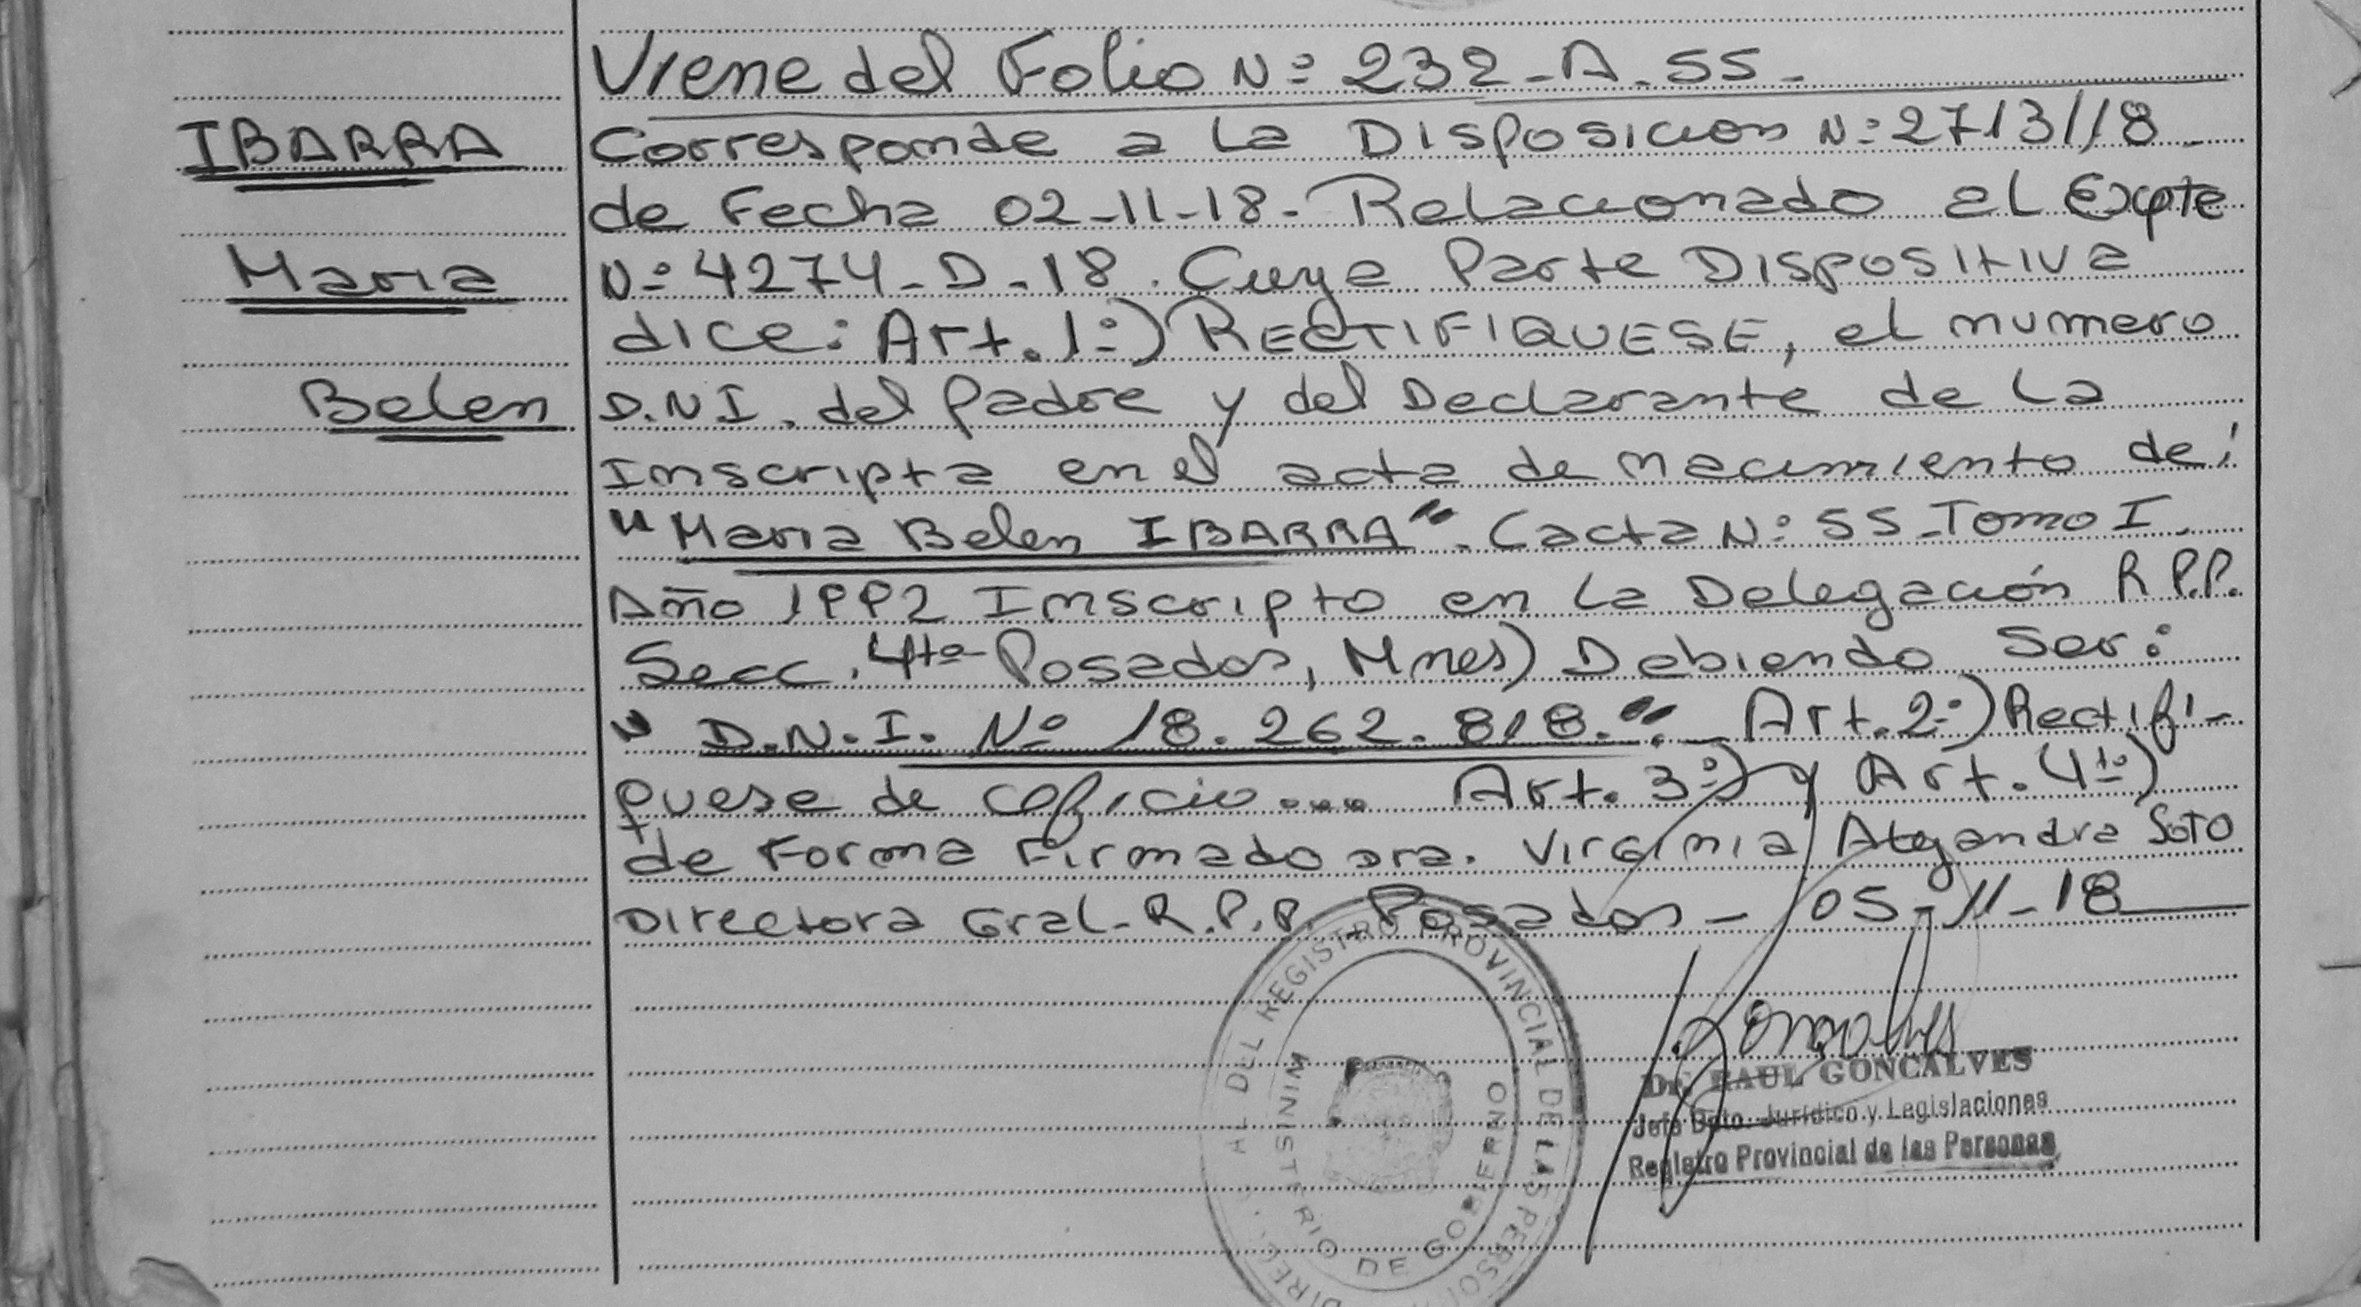 Viene del Folio Nº 232-A-55-
IBARRA
Maria
Belen
Corresponde a la Disposicion Nº 2713/18-
de Fecha 02-11-18- Relacionado al Expte
Nº 4274-D-18. Cuya Parte Dispositiva
dice: Art. 1º) RECTIFIQUESE, el numero
D.N.I. del Padre y del Declarante de la
Inscripta en el acta de nacimiento de:
"Maria Belen IBARRA". (acta Nº 55-Tomo I.
Año 1992 Inscripto en la Delegación R.P.P.
Secc. 4ta Posadas, Mnes) Debiendo Ser:
"D.N.I. Nº 18.262.818." - Art. 2º) Rectifi-
quese de oficio... Art. 3º) y Art. 4to)
de Forma Firmado Dra. Virginia Alejandra Soto
Directora Gral-R.P.P. Posadas - 05-11-18
DEL REGISTRO PROVINCIAL DE LAS
MINISTERIO DE GOBIERNO
Dr. RAUL GONCALVES
Jefe Dpto. Jurídico y Legislaciones
Registro Provincial de las Personas